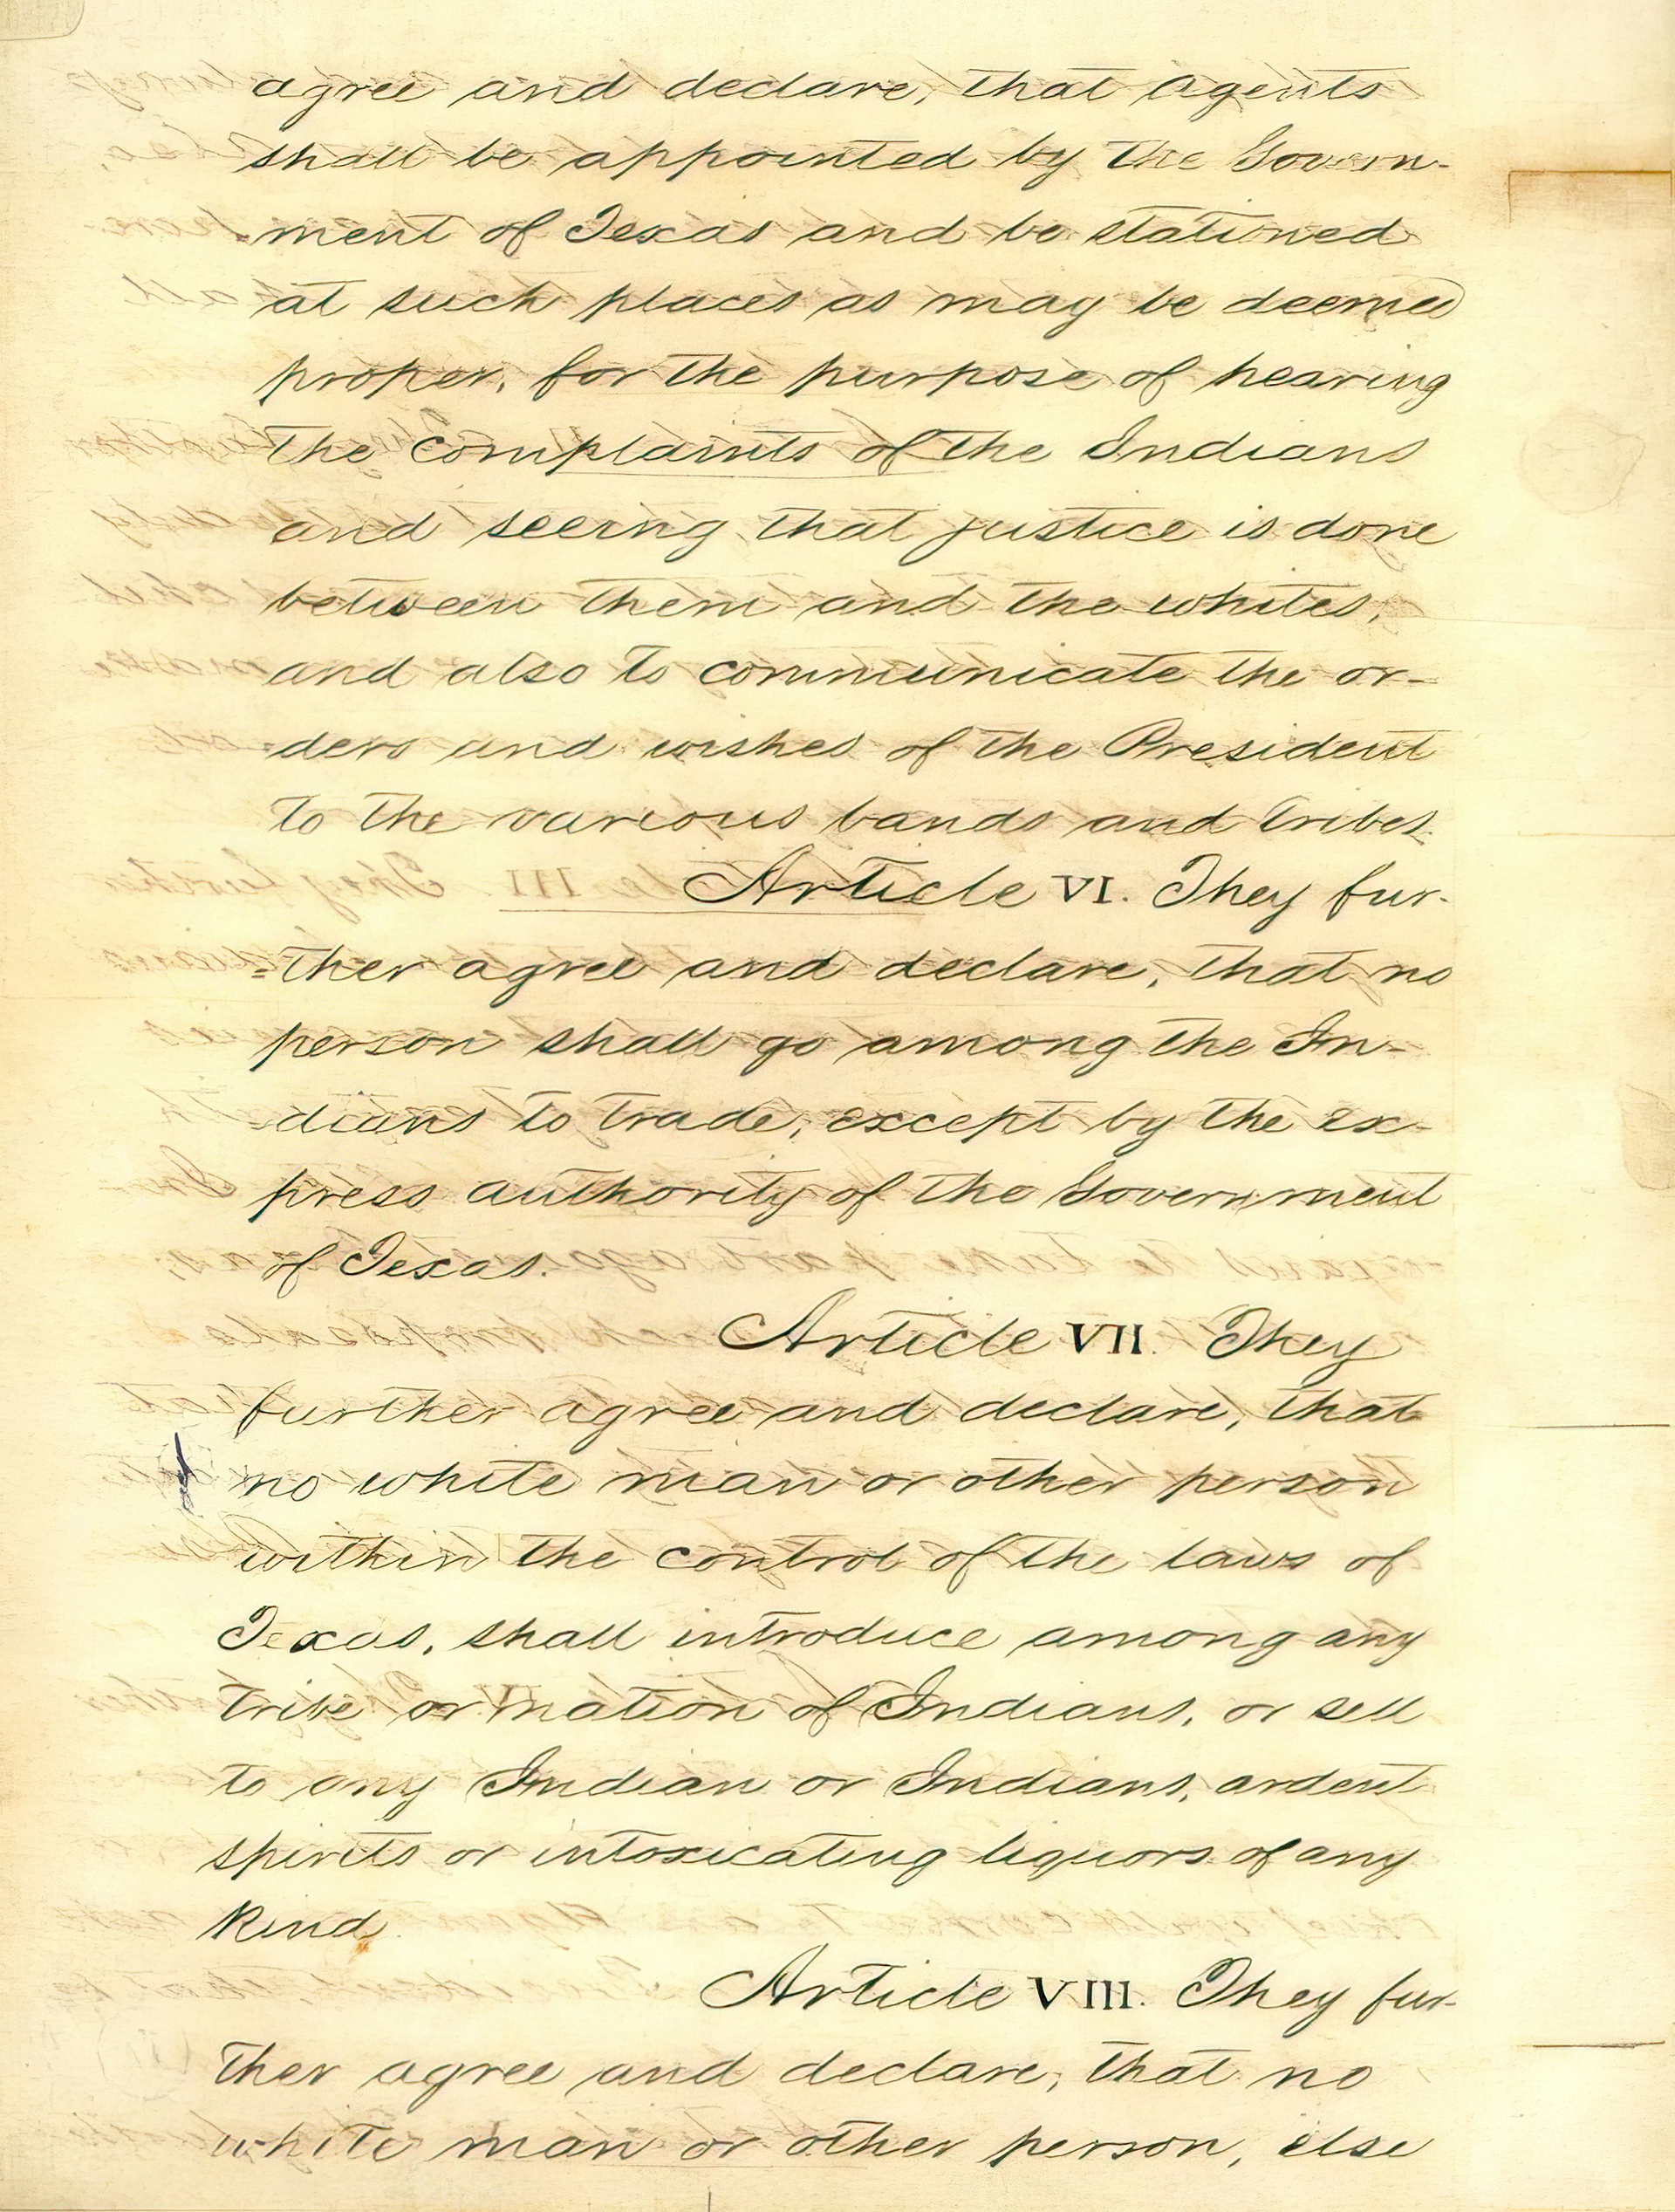 agree and declare, that Agents
shall be appointed by the Govern-
-ment of Texas and be stationed
at such places as may be deemed
proper, for the purpose of hearing
the complaints of the Indians
and seeing that justice is done
between them and the whites,
and also to communicate the or-
-ders and wishes of the President
to the various bands and tribes.
Article VI. They fur-
-ther agree and declare, that no
person shall go among the In-
-dians to trade, except by the ex-
press authority of the Government
of Texas.
Article VII. They
further agree and declare, that
no white man or other person
within the control of the laws of
Texas, shall introduce among any
tribe or nation of Indians, or sell
to any Indian or Indians, ardent
spirits or intoxicating liquors of any
kind.
Article VIII. They fur-
ther agree and declare, that no
white man or other person, else